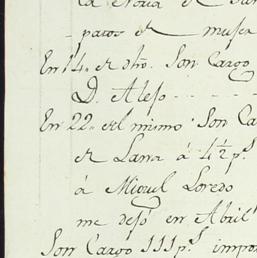 la Novia de
patos de muger
En 14. de dho. Son Cargo
D. Alejo
En 22. del mismo Son Ca
de Lana á 4½ p.s
á Miguel Loredo
me dejó en Abril
Son Cargo 111 p.s impor